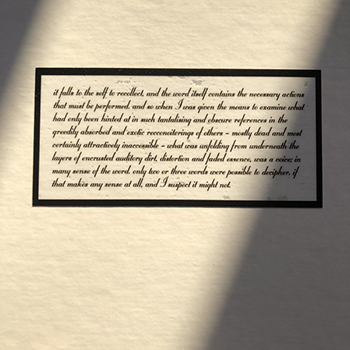 it falls to the self to recollect, and the word itself contains the necessary actions
that must be performed, and so when I was given the means to examine what
had only been hinted at in such tantalising and obscure references in the
greedily absorbed and exotic recconciterings of others – mostly dead and most
certainly attractively inaccessible – what was unfolding from underneath the
layers of encrusted auditory dirt, distortion and faded essence, was a voice; in
many sense of the word, only two or three words were possible to decipher, if
that makes any sense at all, and I suspect it might not.